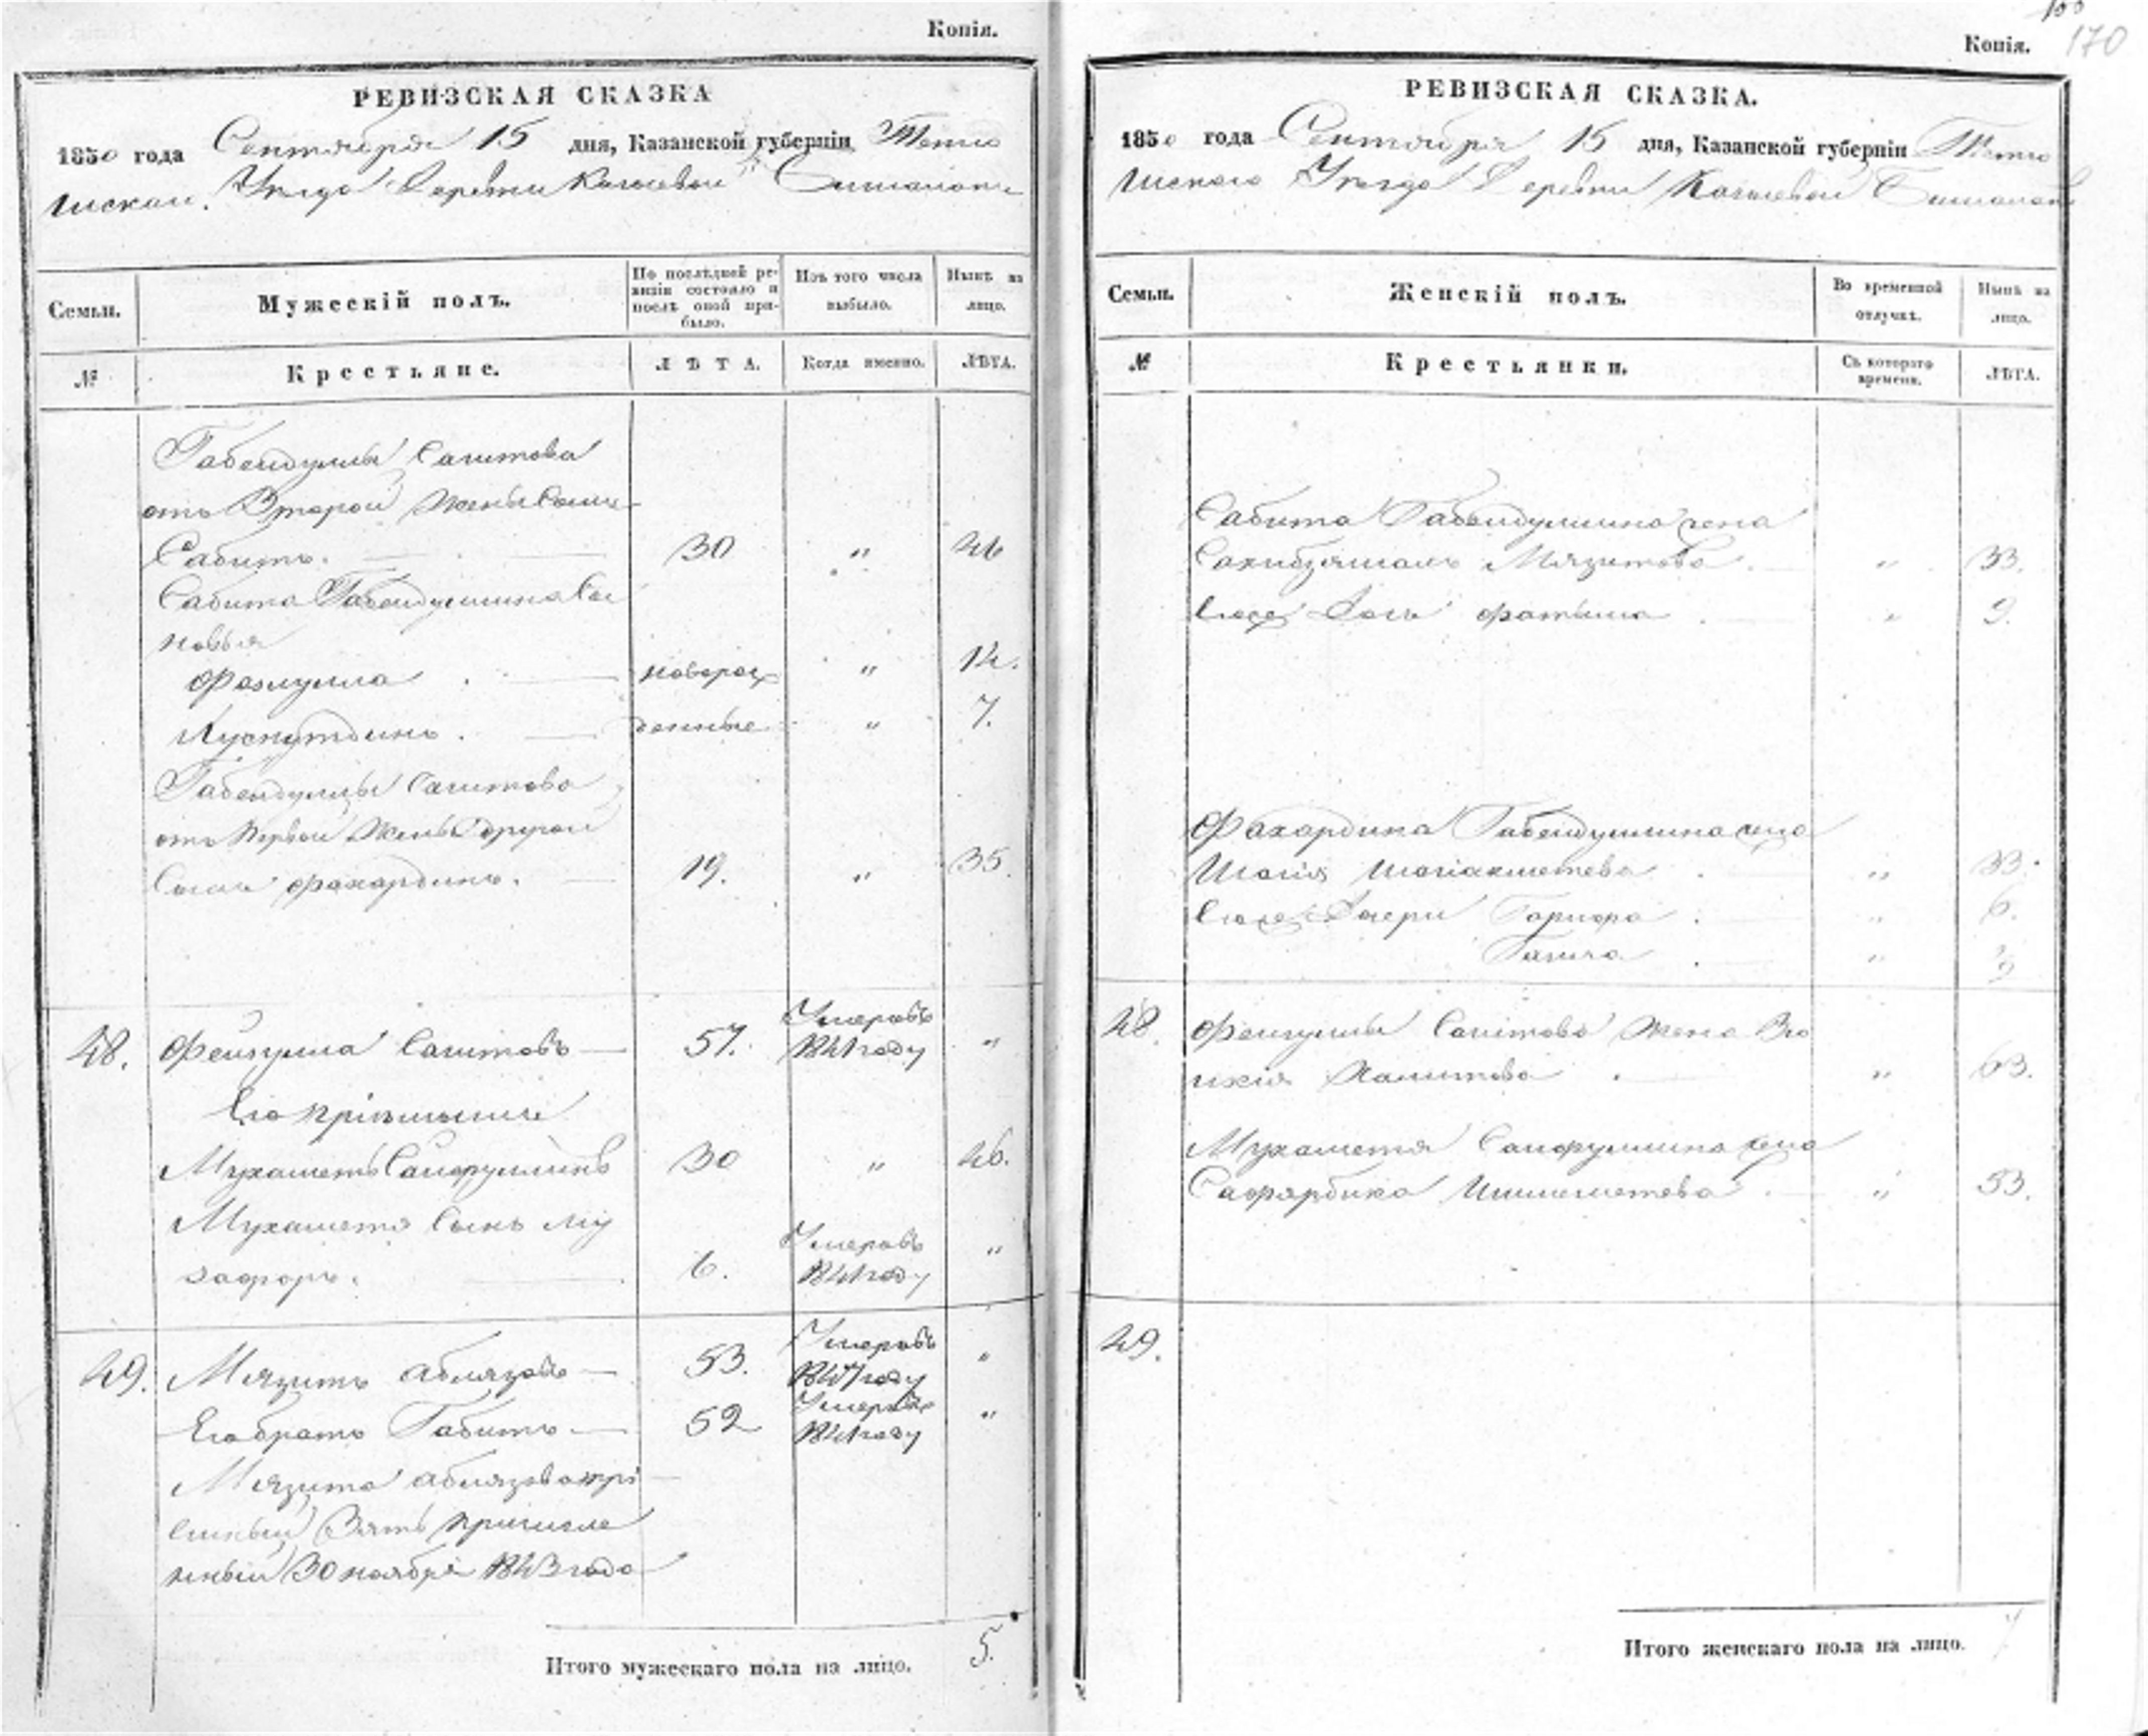 Копія.
РЕВИЗСКАЯ СКАЗКА
1850 года Сентября 15 дня, Казанской губерніи Тетю
шскаго Уѣзда Деревни
Семьи.
Мужескій полъ.
По послѣдней ре-
визіи состояло и
послѣ оной при-
было.
Изъ того числа
выбыло.
Нынѣ на
лицо.
№
Крестьяне.
ЛѢТА.
Когда именно.
ЛѢТА.
Габейдуллы Сагитова
отъ Второй жены сынъ
Сабитъ. 30 " 46
Сабита Габейдуллина сы
новья
Фазлулла новорож " 14.
денные " 7.
Габейдуллы Сагитова
отъ первой жены другой
сынъ Фахардинъ. 19. " 35.
48. Фейзулла Сагитовъ 57. Умеръ въ 1841 году "
Его пріемыши
Мухаметъ Сайфуллинъ 30 " 46.
Мухаметя сынъ Му
зафаръ. 6. Умеръ въ 1841 году "
49. Мязитъ Аблязовъ 53. Умеръ въ 1847 году "
Его братъ Габитъ 52 Умеръ въ 1841 году "
Мязита Аблязова прі
емный Зять причисле
нный 30 ноября 1843 года
Итого мужескаго пола на лицо. 5.
170
Копія.
РЕВИЗСКАЯ СКАЗКА.
1850 года Сентября 15 дня, Казанской губерніи Тетю
шскаго Уѣзда Деревни
Семьи.
Женскій полъ.
Во временной
отлучкѣ.
Нынѣ на
лицо.
№
Крестьянки.
Съ котораго
времени.
ЛѢТА.
Сабита Габейдуллина жена
Сахибзямалъ Мязитова " 33.
Ея дочь Фатыма " 9.
Фахардина Габейдуллина жена
" 33.
дочери " 6.
" 3
48. Фейзуллы Сагитова жена Зю
Халитова " 63.
Мухаметя Сайфуллина жена
Сафярбика Ишмаметева " 53.
49.
Итого женскаго пола на лицо. 7